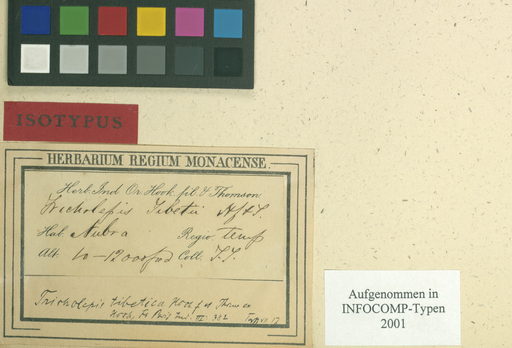 ISOTYPUS
HERBARIUM REGIUM MONACENSE.
Herb. Ind. Or. Hook. fil. & Thomson
Tricholepis Tibetii H.f.&T.
Hab. Nubra Regio temp
Alt. 10-12000 ped Coll. T.T.
Tricholepis tibetica Hook. f. et Thoms.
Hook. Fl. Brit. Ind. III: 382
Aufgenommen in
INFOCOMP-Typen
2001